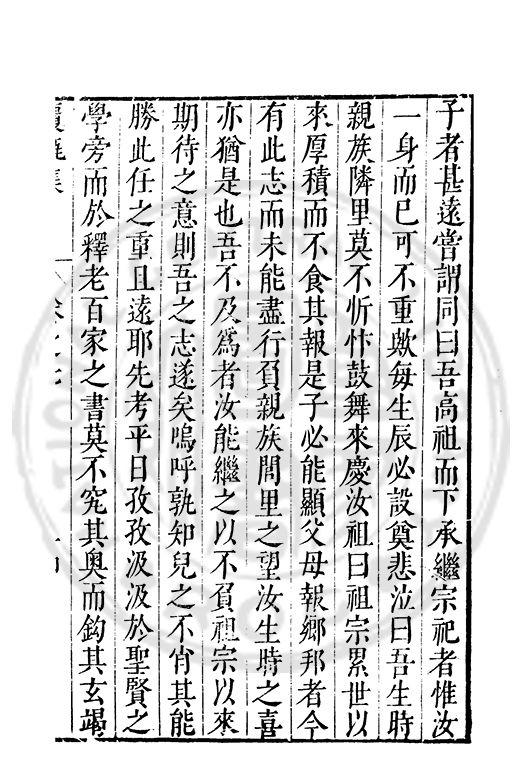 子者甚遠嘗謂同曰吾高祖而下承繼宗祀者惟汝
一身而已可不重歟每生辰必設奠悲泣曰吾生時
親族隣里莫不忻忭鼓舞來慶汝祖曰祖宗累世以
來厚積而不食其報是子必能顯父母報鄉邦者今
有此志而未能盡行負親族閭里之望汝生時之喜
亦猶是也吾不及爲者汝能繼之以不負祖宗以來
期待之意則吾之志遂矣嗚呼孰知兒之不肖其能
勝此任之重且遠耶先考平日孜孜汲汲於聖賢之
學旁而於釋老百家之書莫不究其奧而鈎其玄竭